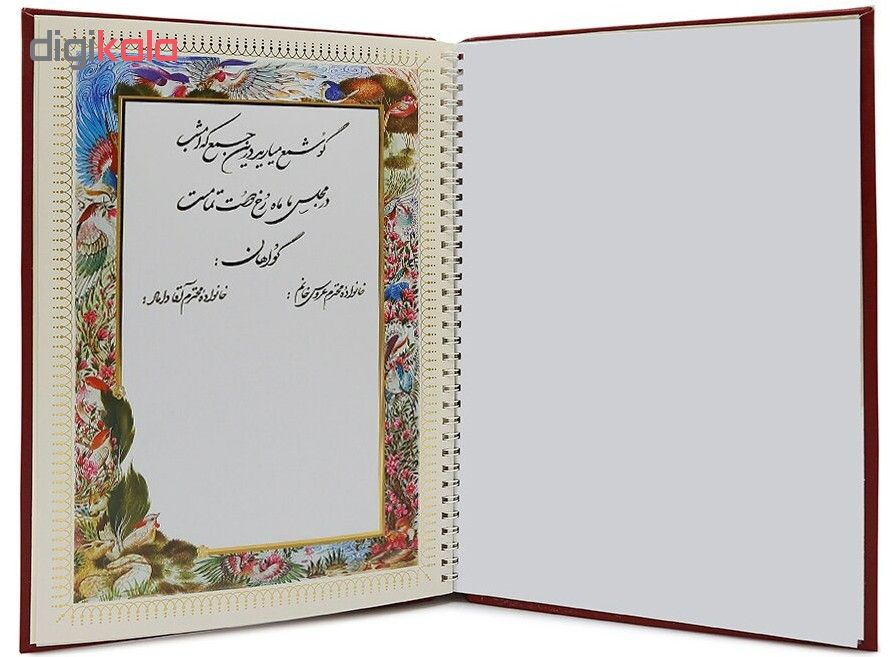 digikala
گو شمع میارید درین جمع که امشب
در مجلس ما ماه رخ دوست تمامست
گواهان :
خانواده محترم عروس خانم :
خانواده محترم آقا داماد :